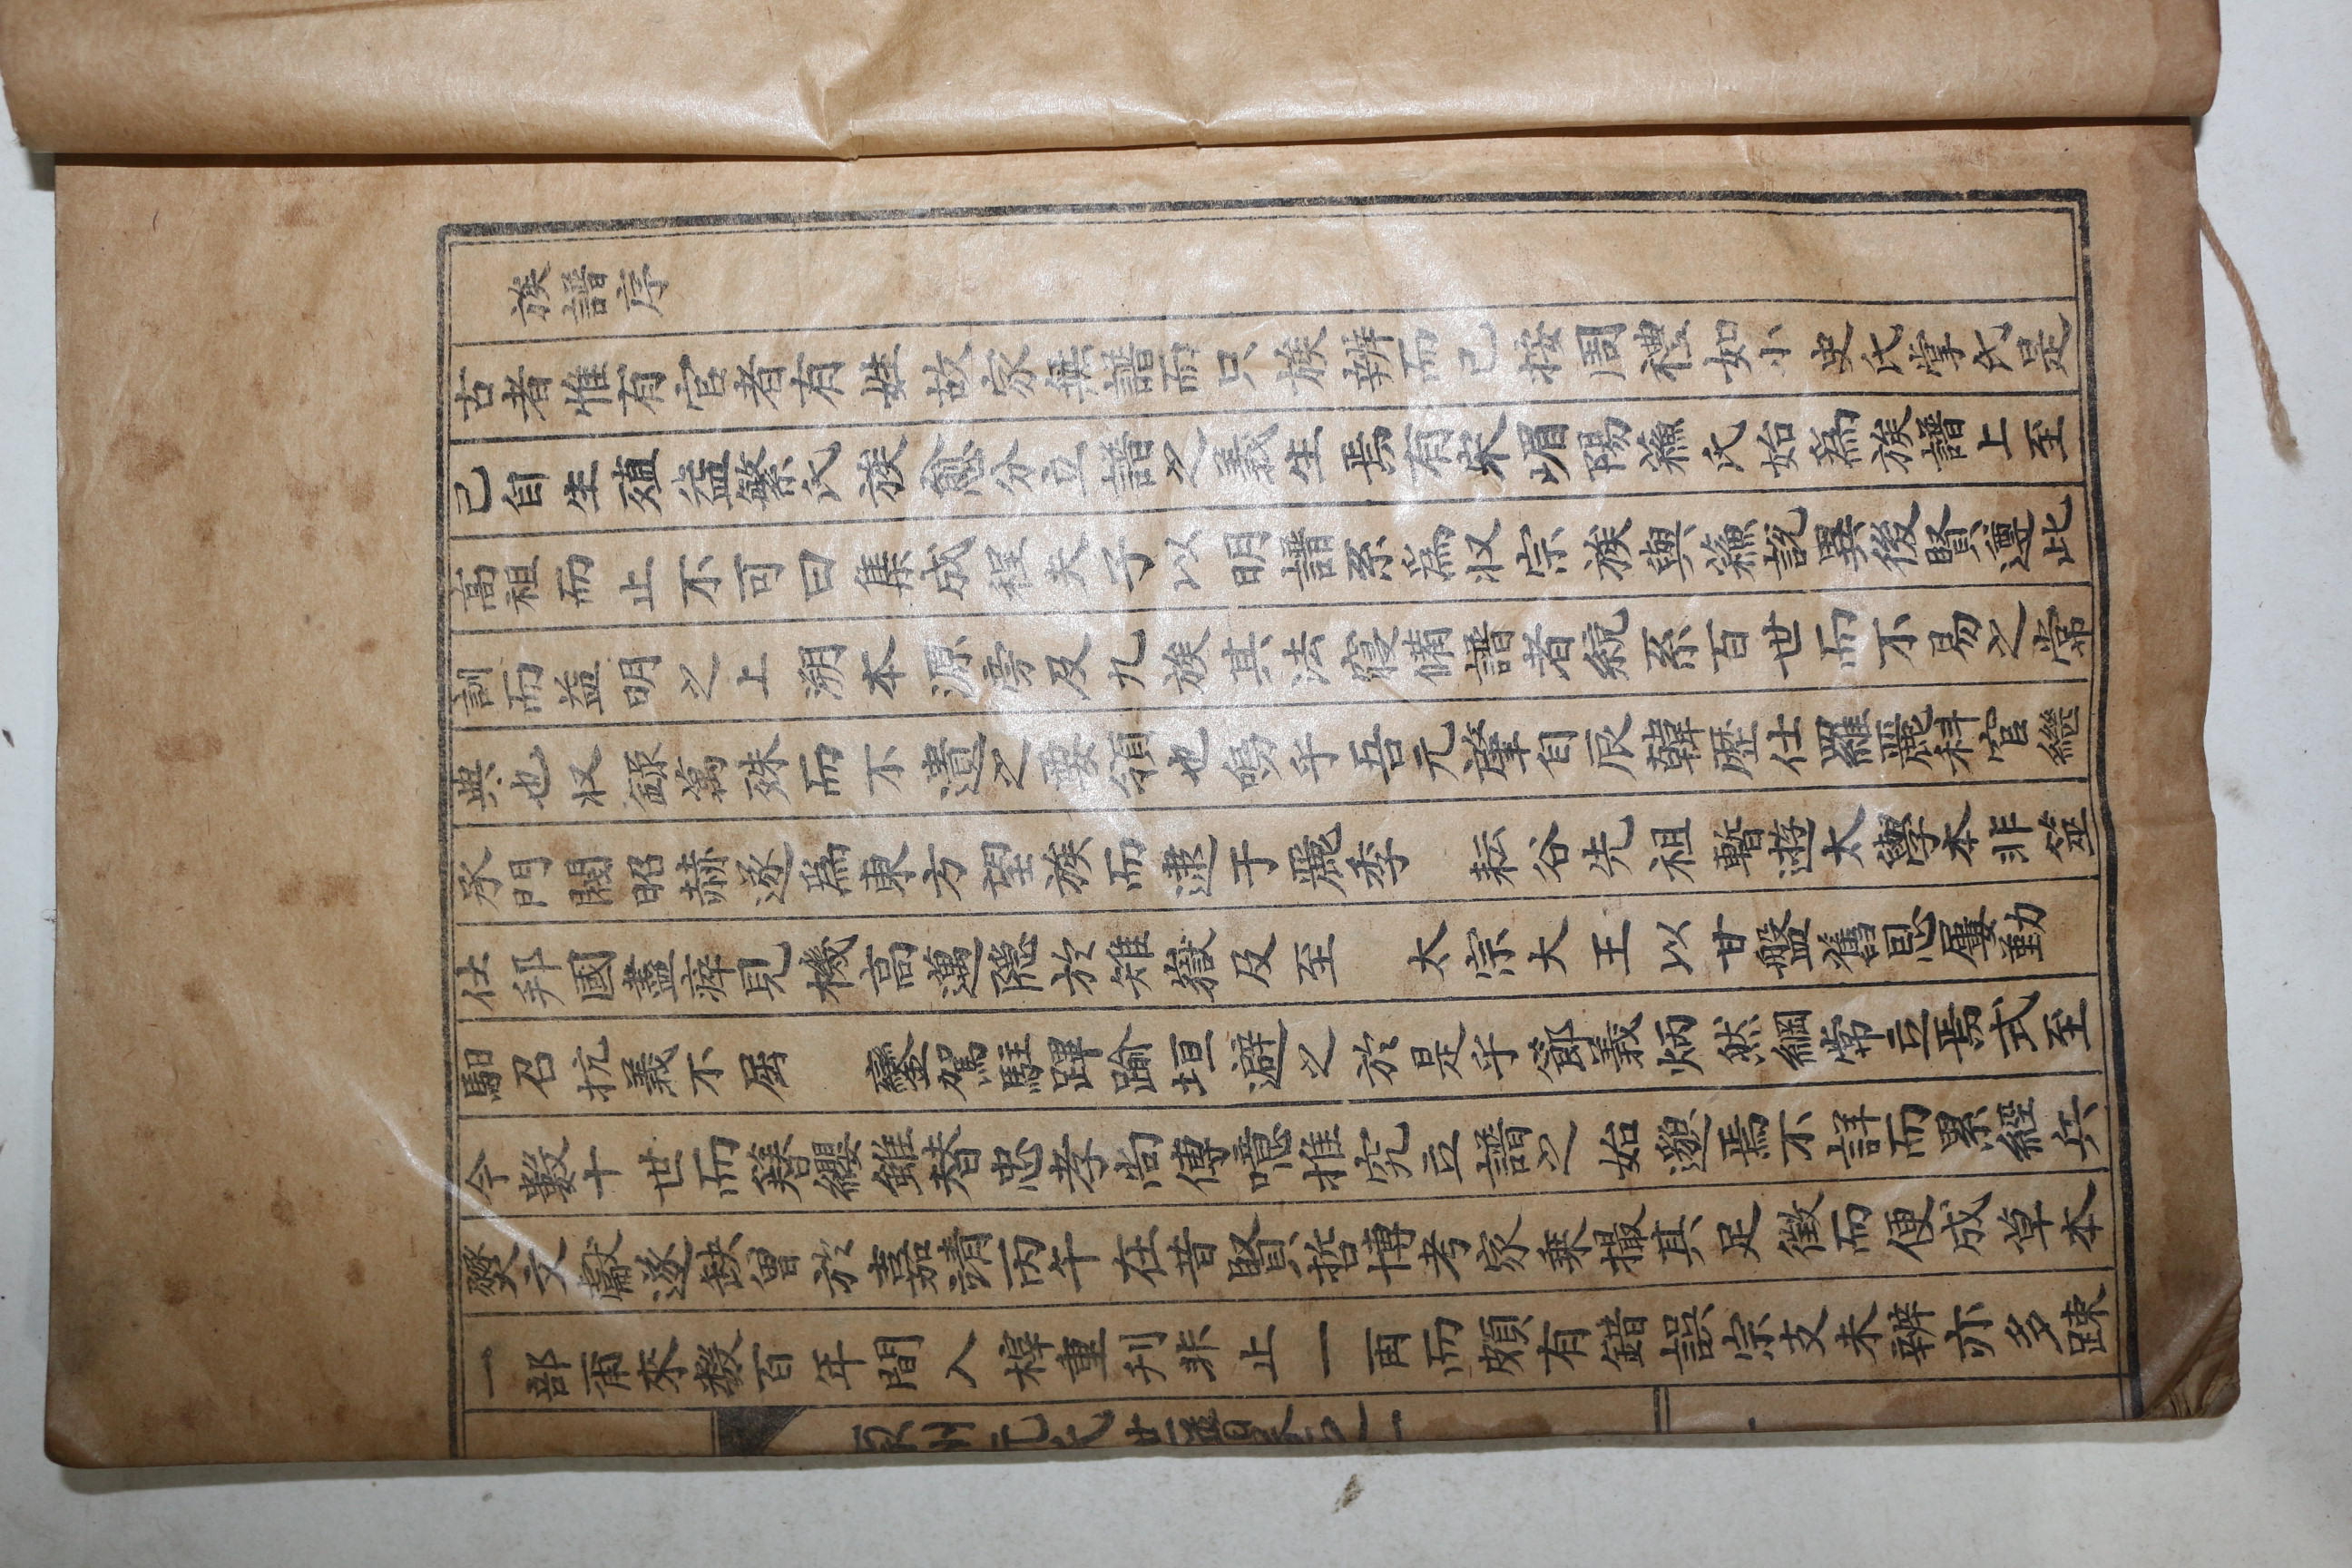 族譜序
古者惟有官者有姓故家無譜而只族辨而已按周禮如小史氏掌氏是
已自生殖益繁氏族愈分立譜之義生焉有宋嵋陽蘓氏始爲族譜上至
高祖而止不可曰集成程夫子以明譜系爲収宗族與蘓說異後賢遵此
訓而益明之上溯本源旁及九族其法寔備譜者統系百世而不易之常
典也収錄萬殊而不遺之要領也嗚乎吾元肇自辰韓歷仕羅麗科宦繼
承門閥昭赫遂爲東方望族而逮于麗季 耘谷先祖暫遊太學本非筮
仕邦國盡瘁見機高邁隱於雉嶽及至 太宗大王以甘盤舊恩屢勤
馹召抗義不屈 鑾駕駐蹕踰垣避之於是乎節義炳然綱常立焉式至
今數十世而簪纓雖替忠孝尚傳噫推究立譜之始邈焉不詳而累經兵
燹文獻遂缺曾於嘉靖丙午在昔賢哲博考家乘撮其足徵而便成草本
一部甫來数百年間入榟重刋非止一再而頗有錯誤宗支未辨亦多踈
原州元氏世譜卷之一